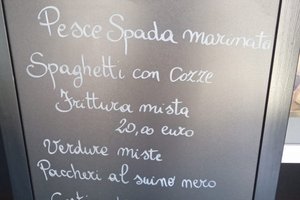 Pesce Spada marinata
Spaghetti con Cozze
Frittura mista
20,00 euro
Verdure miste
Paccheri al suino nero